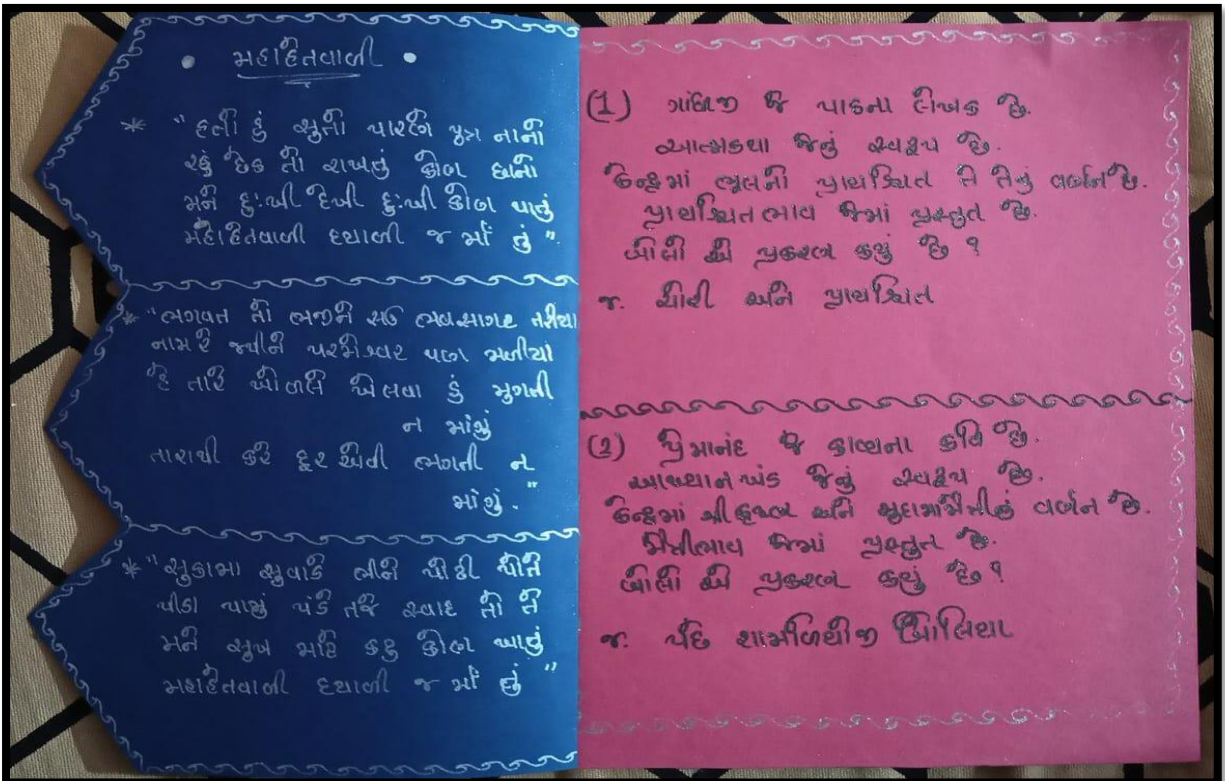 મહાહેતવાળી
* "હતી હું સુતો પારણે પુત્ર નાનો
રડું છેક તો રાખતું કોણ છાનો
મને દુઃખી દેખી દુઃખી કોણ થાતું
મહાહેતવાળી દયાળી જ માઁ તું".
* "ભગવત તો ભજીને સઉ ભવસાગર તરીયા
નામ રે જપીને પરમેશ્વર પણ મળીયાં
હે તારે ખોળલે ખેલવા હું મુગતી
ન માંગું
તારાથી કરે દૂર એવી ભગતી ન
માંગું."
* "સુકામા સુવાડે ભીને પોઢી પોતે
પીડા પામું પંડે તજે સ્વાદ તો તે
મને સુખ માટે કટુ કોણ ખાતું
મહાહેતવાળી દયાળી જ માઁ તું"
(1) ગાંધીજી જે પાઠના લેખક છે.
આત્મકથા જેનું સ્વરૂપ છે.
કેન્દ્રમાં ભૂલનો પ્રાયશ્ચિત તે તેનું વર્ણન છે.
પ્રાયશ્ચિત ભાવ જેમાં પ્રસ્તુત છે.
બોલો એ પ્રકરણ કયું છે ?
જ. ચોરી અને પ્રાયશ્ચિત
(2) પ્રેમાનંદ જે કાવ્યના કવિ છે.
આખ્યાન ખંડ જેનું સ્વરૂપ છે.
કેન્દ્રમાં શ્રીકૃષ્ણ અને સુદામામૈત્રીનું વર્ણન છે.
મૈત્રીભાવ જેમાં પ્રસ્તુત છે.
બોલો એ પ્રકરણ કયું છે ?
જ. પછે શામળિયોજી બોલિયા